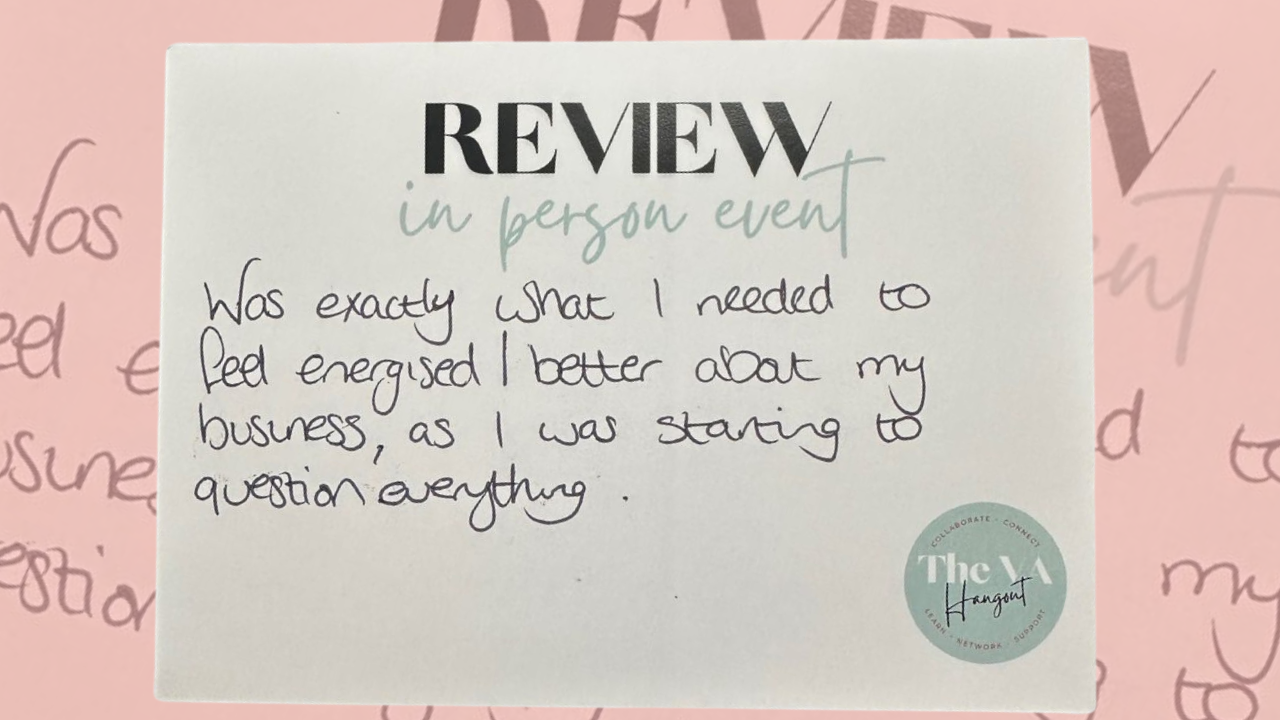 REVIEW
in person event
Was exactly what I needed to
feel energised / better about my
business, as I was starting to
question everything.
COLLABORATE - CONNECT
The VA
Hangout
LEARN - NETWORK - SUPPORT